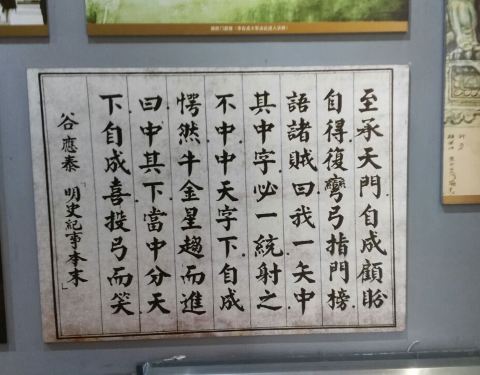 至承天門自成顧盼
自得復彎弓指門榜
語諸賊曰我一矢中
其中字必一統射之
不中中天字下自成
愕然牛金星趨而進
曰中其下當中分天
下自成喜投弓而笑
谷應泰「明史紀事本末」